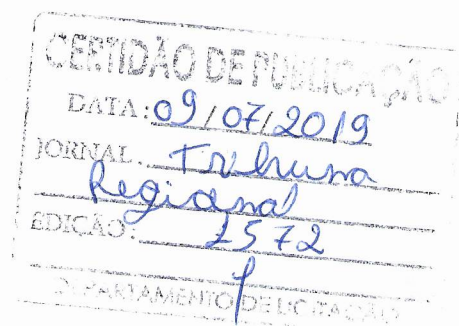 CERTIDÃO DE PUBLICAÇÃO
DATA: 09/07/2019
JORNAL: Tribuna
Regional
EDIÇÃO: 2572
DEPARTAMENTO DE LICITAÇÃO